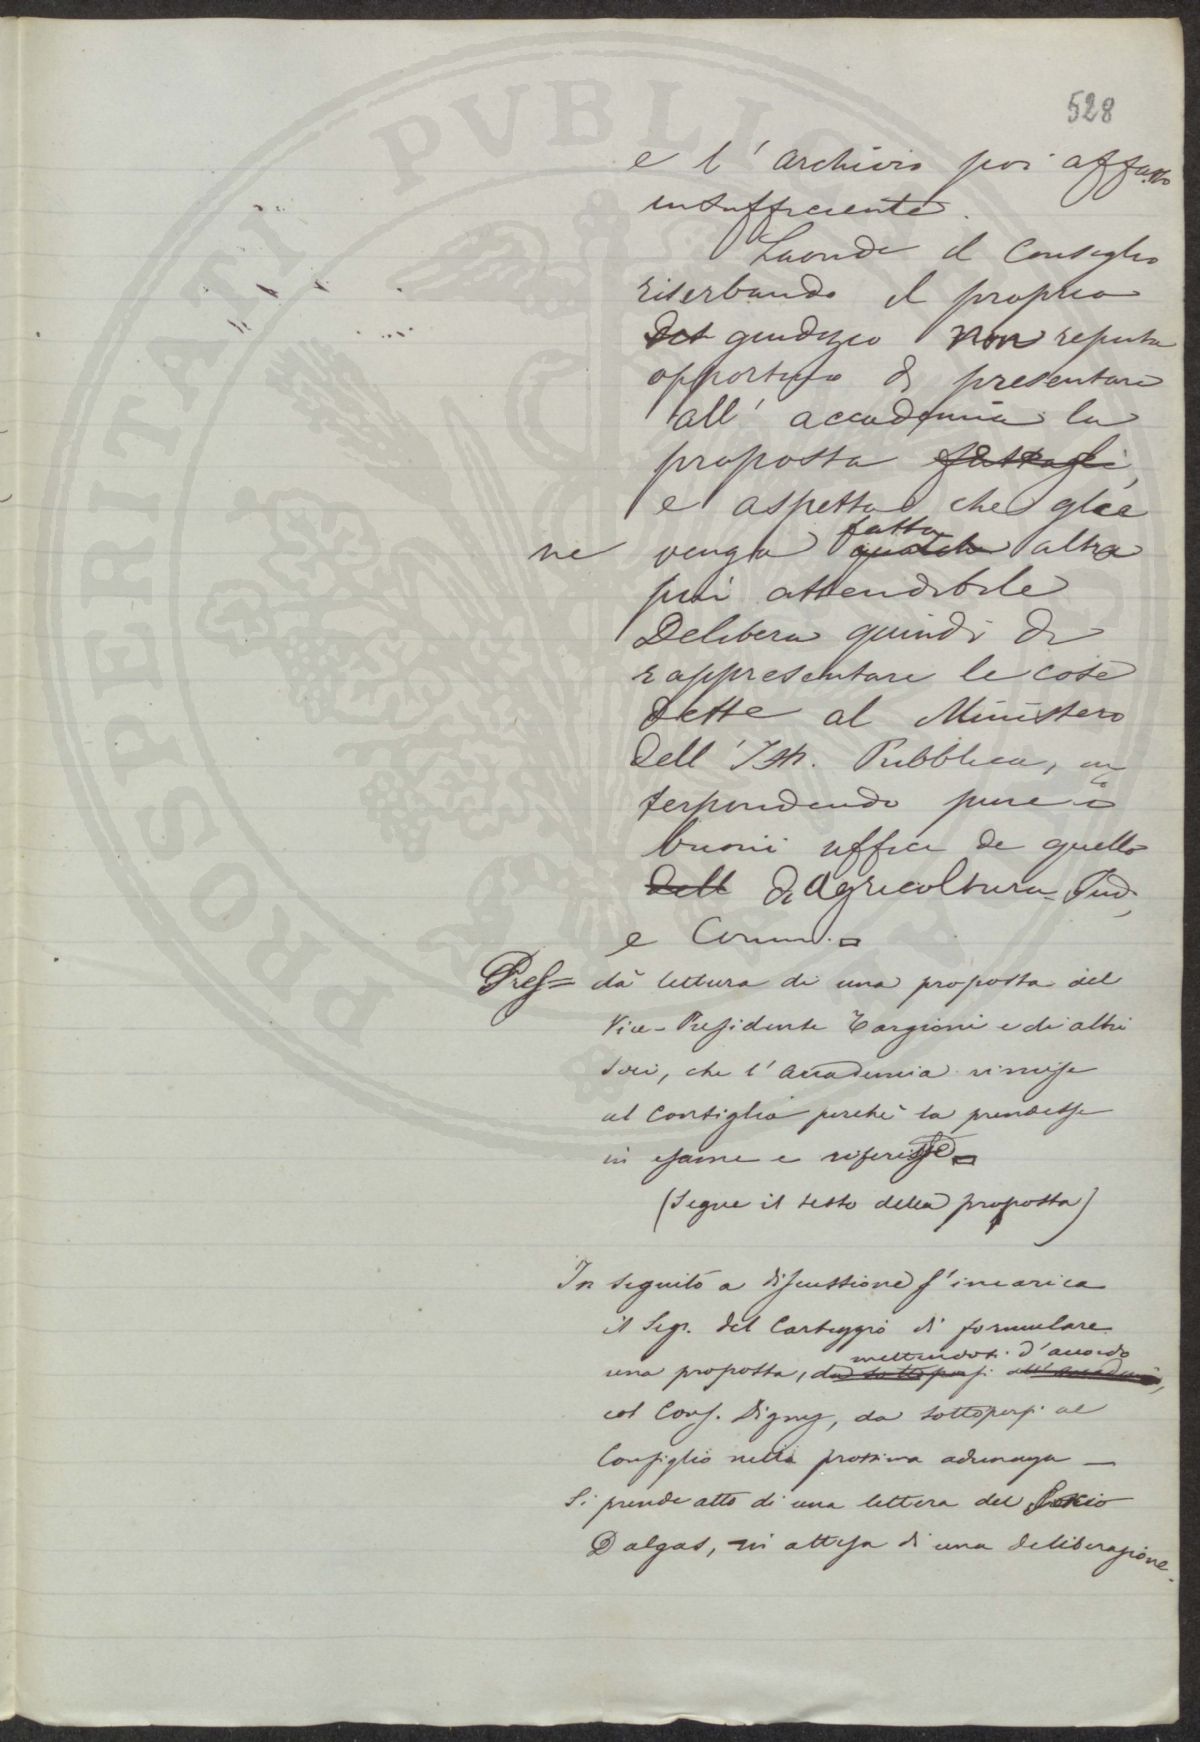 528
e l'archivio poi affatto
insufficiente.
Laonde il Consiglio
riserbando il proprio
del giudizio non reputa
opportuno di presentare
all' accademia la
proposta fattagli,
e aspetta che gliene
venga fatta qualche altra
più attendibile
Delibera quindi di
rappresentare le cose
dette al Ministero
dell' Ist. Pubblica, in
terponendo pure i
buoni uffici di quello
dell di Agricoltura Ind.
e Comm.
Pres = dà lettura di una proposta del
Vice-Presidente Targioni e di altri
Soci, che l'Accademia rimise
al Consiglio perché la prendesse
in esame e riferisse
(Segue il testo della proposta)
In seguito a discussione s'incarica
il Seg. del Carteggio di formulare
mettendosi d'accordo
una proposta, da sottoporsi all'Accademia,
col Cons. Digny, da sottoporsi al
Consiglio nella prossima adunanza —
Si prende atto di una lettera del Socio
Dalgas, in attesa di una deliberazione.
PROSPERITATI PVBLICAE